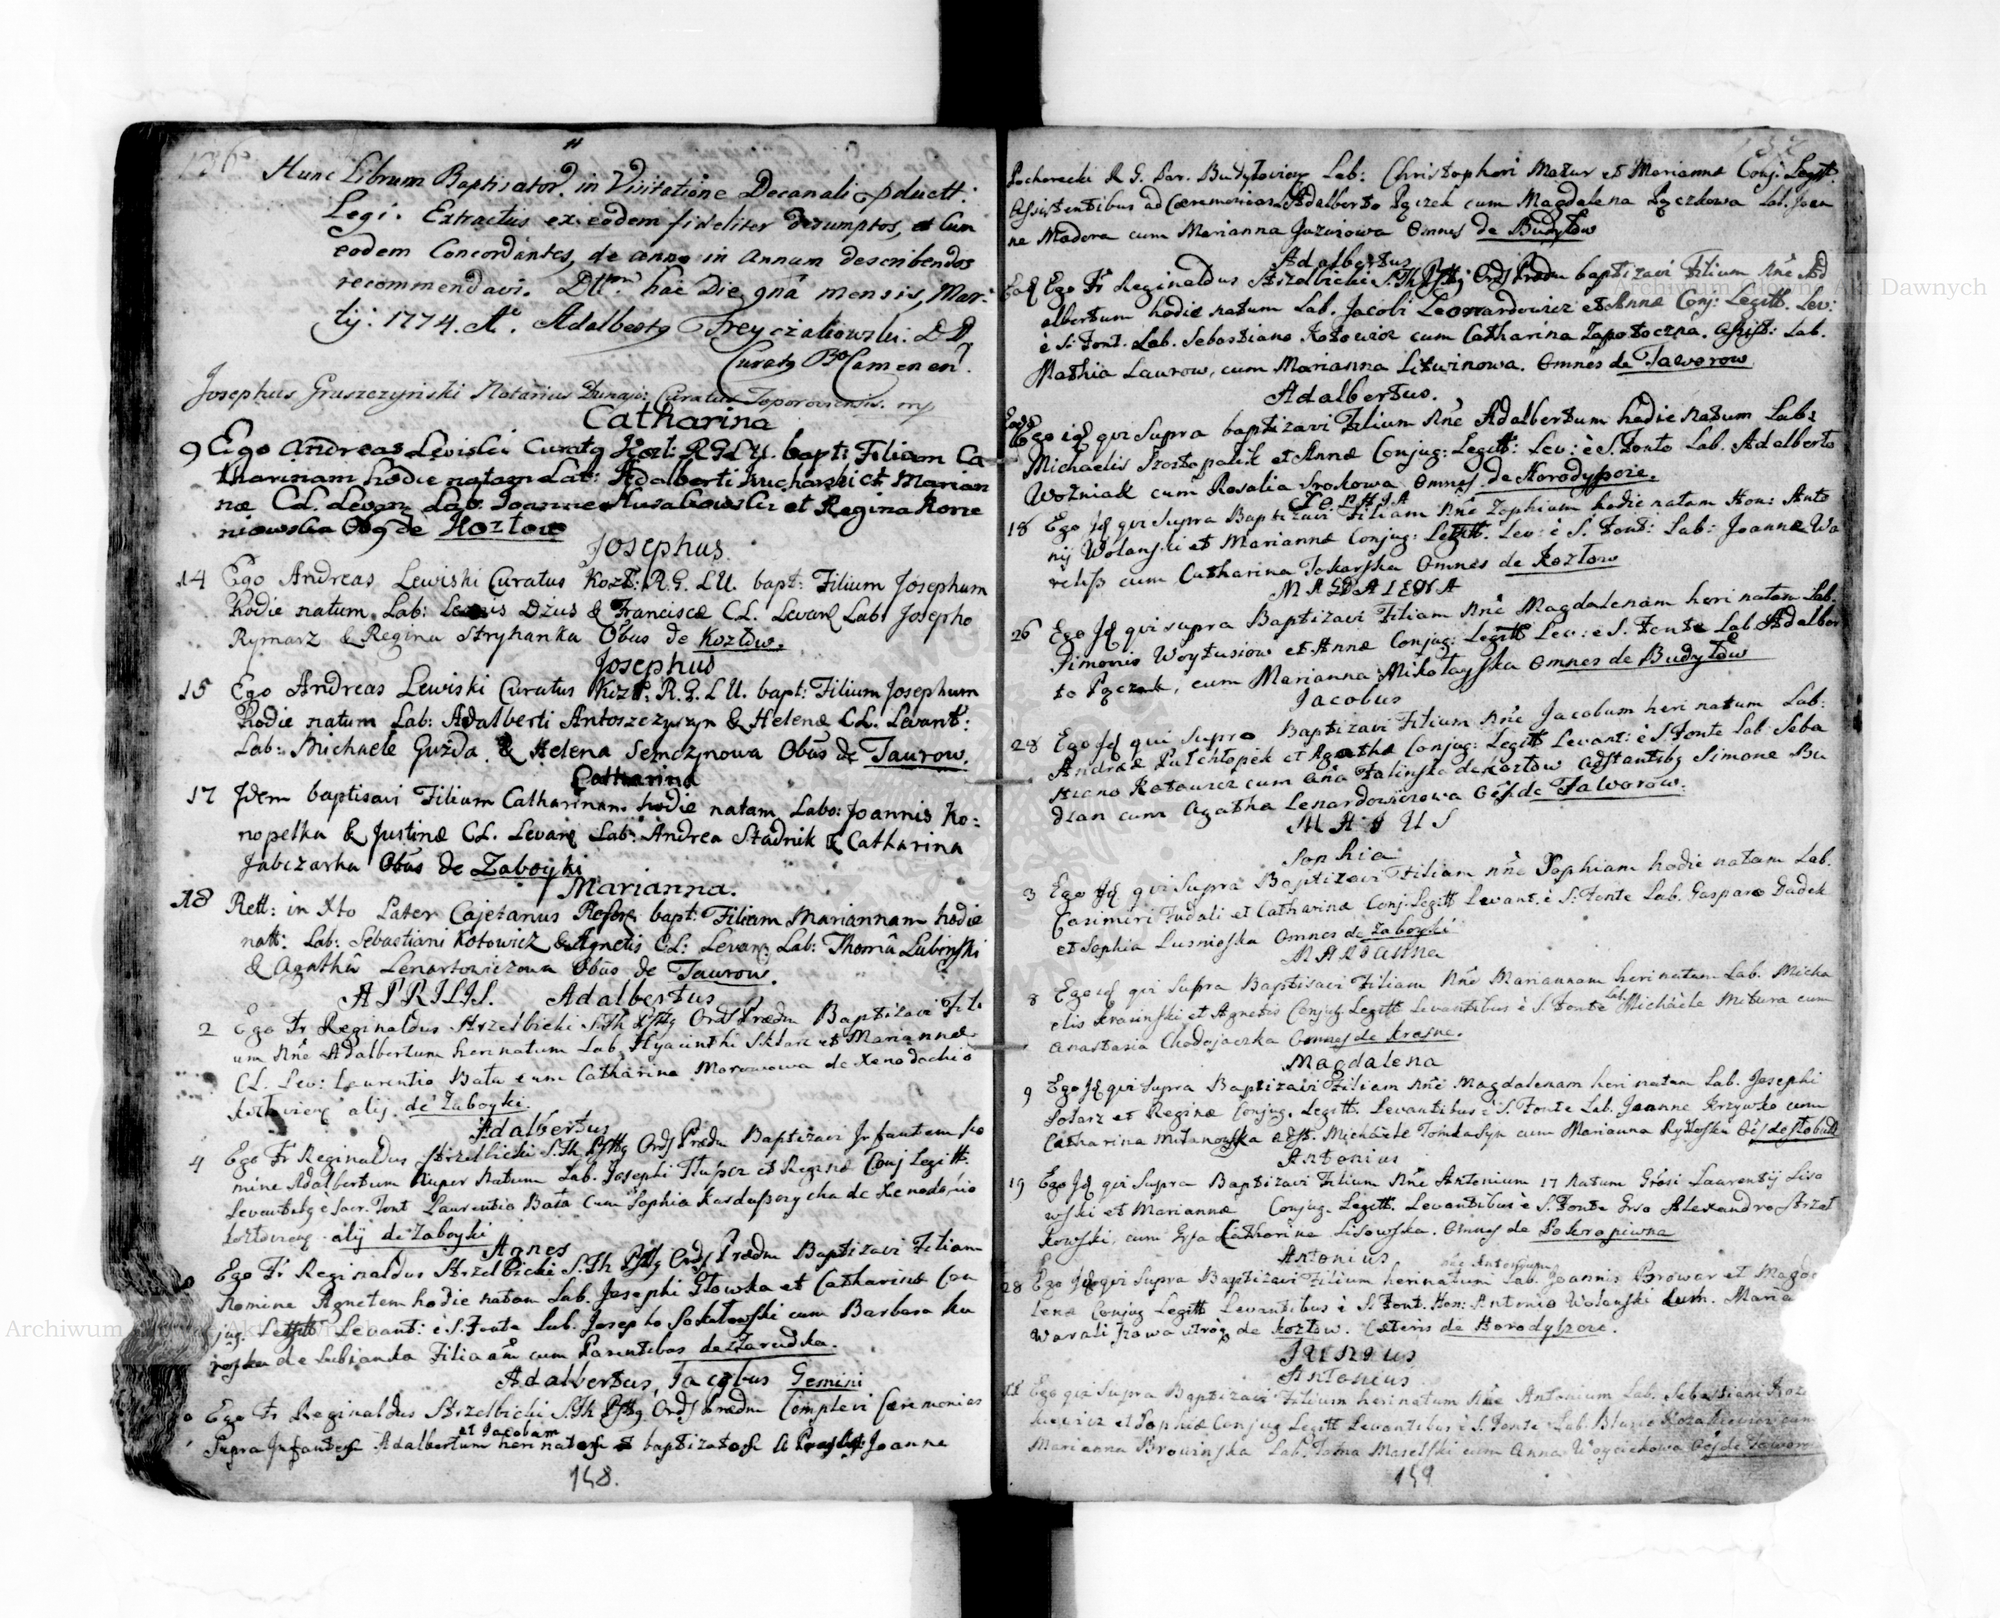 136
Hunc Librum Baptisator. in Visitatione Decanali pductt:
Legi. Extractus ex eodem fideliter desumptos, et Cum
eodem Concordantes, de anno in Annum describendos
recommendavi. Dtt. hac Die 9na mensis, Mar:
tij: 1774. Ao. Adalbertq Freyczakowski. D.D.
Curatq Camenen.
Josephus Gruszczynski Notarius Dunajo: Curatus Toporovensis. mp
Catharina
9 Ego Andreas Lewiski Curatq Kozl: R.G.L.U. bapt: Filiam Ca
tharinam hodie natam Lab: Adalberti Kucharski et Marian
næ C.L. Levan Lab. Joanne Musakowski et Regina Korze
niowska Obq de Kozłow
Josephus
14 Ego Andreas Lewiski Curatus Kozł: R.G. LU. bapt: Filium Josephum
hodie natum Lab: Dżus & Franciscæ C.L. Levarq Lab: Josepho
Rymarz & Regina Stryhanka Obus de Kozłow.
Josephus
15 Ego Andreas Lewiski Curatus Kozł: R.G. LU. bapt: Filium Josephum
hodie natum Lab: Adalberti Antoszczyszyn & Helenæ C.L. Levant:
Lab: Michaele Gużda & Helena Semczynowa Obus de Taurow.
Catharina
17 Jdem baptisavi Filium Catharinam hodie natam Labo: Joannis Ko:
nopelka & Justinæ C.L. Levarq Lab: Andrea Stadnik & Catharina
Jabczarka Obus de Zaboyki
Marianna.
18 Rett: in Xto Pater Cajetanus bapt: Filiam Mariannam hodie
natt: Lab: Sebastiani Kotowicz & Agnetis C.L: Levarq. Lab: Thomâ Lubinski
& Agathâ Lenartowiczowa Obus de Taurow.
APRILIS. Adalbertus
2 Ego Fr Reginaldus Strzelbicki S.Th Ord Prædu Baptizavi Fili
um Nñe Adalbertum heri natum Lab. Hyacinthi Sklarz et Mariannæ
C.L. Lev: Laurentio Bała cum Catharina de Xenodochio
alij. de Zaboyki.
Adalbertus
4 Ego Fr Reginaldus Strzelbicki S.Th Ord Prædu Baptizavi Jnfantem No
mine Adalbertum nuper natum Lab. Josephi et Reginæ Conj Legitt.
Levantibq è Sacr. Font Laurentio Bała cum Sophia de Xenodohio
alij de Zaboyki
Agnes
Ego Fr Reginaldus Strzelbicki S.Th Ord Prædu Baptizavi Filiam
Nomine Agnetem hodie natam Lab. Josephi Głowka et Catharinæ Con
jug. Legitt Levant: è S. Fonte Lab. Josepho Sokałowski cum Barbara
de Lubianka Filia cum Parentibus de Zarudka.
Adalbertus, Jacobus Gemini
Ego Fr Reginaldus Strzelbicki S.Th Ord Prædu Complevi Cæremonias
et Jacobum
Supra Infantes Adalbertum heri natos baptizatos a Joanne
148.
R G. Par. Budyłoviens Lab: Christophori Mazur et Mariannæ Conj: Legitt:
Assistentibus ad Cæremonias Adalberto Pączek cum Magdalena Pączkowa Lab. Joan
ne Madera cum Marianna Omnes de Budyłow
Adalbertus
Eod Ego Fr Reginaldus Strzelbicki S.Th Ord Prædu baptizavi Filium Nñe Ad
albertum hodie natum Lab. Jacobi Leonardowicz et Annæ Conj: Legitt. Lev:
è S. Font. Lab. Sebastiano Kotowicz cum Catharina Zapotoczna. Assist: Lab.
Mathia Laurow, cum Marianna Litwinowa. Omnes de Taworow
Adalbertus.
Eod Ego id qvi Supra baptizavi Filium Nñe Adalbertum hodie natum Lab:
Michaelis Szostopalik et Annæ Conjug: Legitt: Lev: è S. Fonte Lab. Adalberto
Woźniak cum Rosalia Srokowa Omnes de Horodyszcze.
ZOPHIA
18 Ego id qvi Supra Baptizavi Filiam Nñe Zophiam hodie natam Hon: Anto
nij Wolanski et Mariannæ Conjug: Legitt. Lev: è S. Font: Lab: Joanne Wa
relisz cum Catharina Tokarska Omnes de Kozłow
MAGDALENA
26 Ego Jd qvi supra Baptizavi Filiam Nñe Magdalenam heri natam Lab.
Simonis Woytusiow et Annæ Conjug: Legitt Lev: è S. Fonte Lab. Adalber
to Pączek, cum Marianna Mikołayska Omnes de Budyłow
Jacobus
28 Ego Jd qui Supra Baptizavi Filium Nñe Jacobum heri natum Lab:
Andreæ Pulchłopek et Agathæ Conjug: Legitt Levant: è S. Fonte Lab Seba
stiano Kotowicz cum Aña Falinska de Kozłow Adstantibq Simone Bu
dzan cum Agatha Lenardowiczowa Oes de Taworow.
MAJUS
Sophia
3 Ego Jd qvi Supra Baptizavi Filiam Nñe Sophiam hodie natam Lab.
Casimiri Fudali et Catharinæ Conj: Legitt Levant. è S. Fonte Lab. Gasparo Dudek
et Sophia Lusnioska Omnes de Zaboyki
MARIANNA
8 Ego id qvi Supra Baptisavi Filiam Nñe Mariannam heri natam Lab. Micha
elis Krasinski et Agnetis Conjug Legitt Levantibus è S. Fonte Lab. Michaele Mitura cum
Anastasia Chodojaczka Omnes de Krasne.
Magdalena
9 Ego Jd qvi Supra Baptizavi Filiam Nñe Magdalenam heri natam Lab. Josephi
Solarz et Reginæ Conjug. Legitt. Levantibus è S. Fonte Lab. Joanne Krzywko cum
Catharina Mułanowska Adst. Michaele Tomkasyn cum Marianna Ryłoska
Antonius
19 Ego Jd qvi Supra Baptizavi Filium Nñe Antonium 17 natum Grosi Laurentij Liso
wski et Mariannæ Conjug. Legitt. Levantibus è S. Fonte Grso Alexandro Strzał
kowski, cum Grsa Catharina Lisowska. Omnes de Pokropiwna
Antonius
nñe Antonium
28 Ego Jd qvi Supra Baptizavi Filium heri natum Lab. Joannis Browar et Magda
lenæ Conjug Legitt Levantibus è S. Font. Hon: Antonio Wolanski cum. Maria
Waraliszowa utrq de Kozłow. Cæteris de Horodyszcze.
JUNIUS
Antonius
11 Ego qvi Supra Baptizavi Filium heri natum Nñe Antonium Lab. Sebastiani Koza
kiewicz et Sophiæ Conjug Legitt Levantibus è S. Fonte Lab. Blasio Kozakiewicz cum
Marianna Browinska Lab. Toma Maselski cum Anna Woyciechowa Oes de Taworow
149
Archiwum Główne Akt Dawnych
Archiwum Główne Akt Dawnych